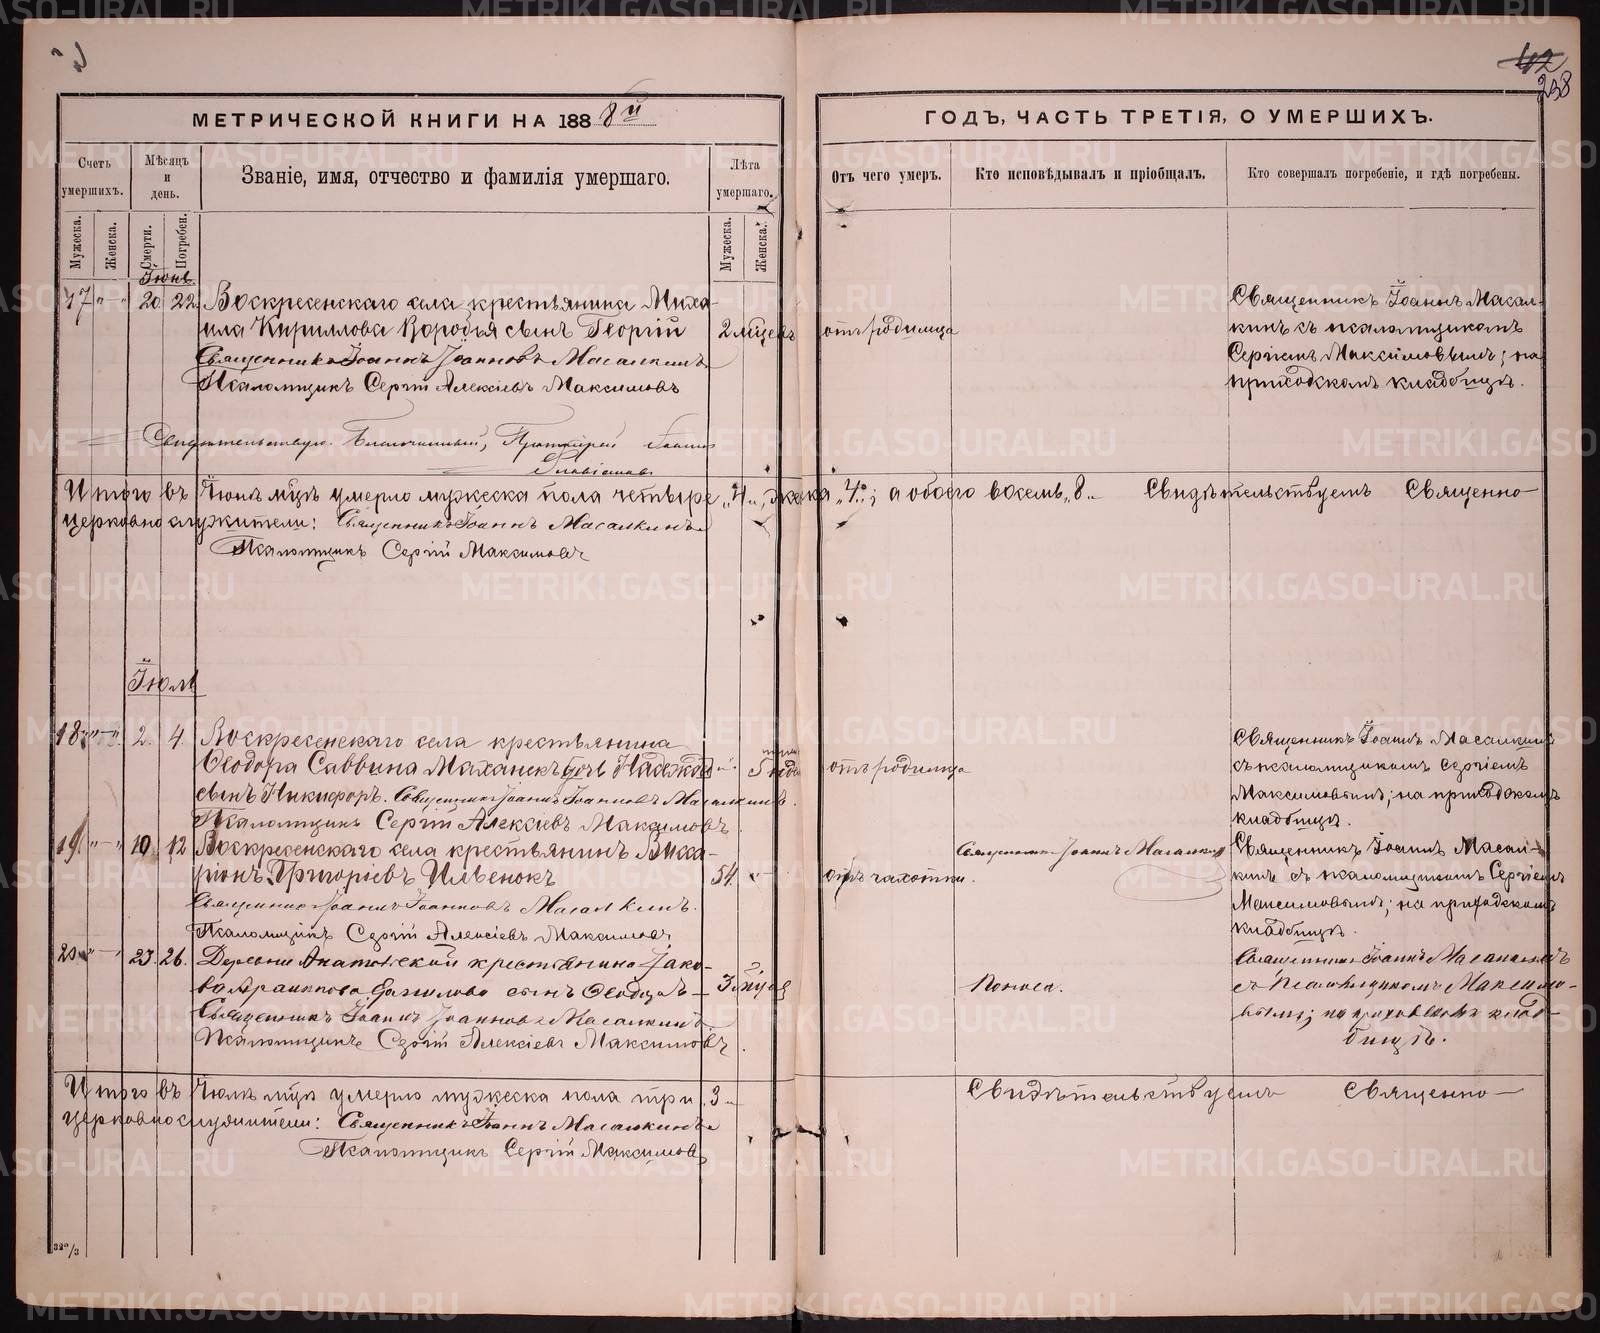 42
238
МЕТРИЧЕСКОЙ КНИГИ НА 1888й
ГОДЪ, ЧАСТЬ ТРЕТІЯ, О УМЕРШИХЪ.
Счетъ умершихъ.
Мѣсяцъ и день.
Званіе, имя, отчество и фамилія умершаго.
Лѣта умершаго.
Отъ чего умеръ.
Кто исповѣдывалъ и пріобщалъ.
Кто совершалъ погребеніе, и гдѣ погребены.
Мужеска.
Женска.
Смерти.
Погребен.
Мужеска.
Женска.
Іюнь
17 "—" 20 22 Воскресенскаго села крестьянина Миха-
ила Кириллова Воробья сынъ Георгій 2 мѣсець отъ родимца
Священникъ Іоаннъ Іоанновъ Масалкинъ
Псаломщикъ Сергій Алексіевъ Максимовъ
Священникъ Іоаннъ Масал-
кинъ съ псаломщикомъ
Сергіемъ Максимовымъ; на
приходскомъ кладбищѣ.
Свидѣтельствую. Благочинный, Протоіерей Іоаннъ
Итого въ Іюнѣ мцѣ умерло мужеска пола четыре "4", женска "4"; а обоего восемь "8" Свидѣтельствуемъ Священно-
церковнослужители: Священникъ Іоаннъ Масалкинъ
Псаломщикъ Сергій Максимовъ
Іюль
18 "—" 2. 4. Воскресенскаго села крестьянина
Ѳеодора Саввина
сынъ Никифоръ. Священникъ Іоаннъ Іоанновъ Масалкинъ.
Псаломщикъ Сергій Алексіевъ Максимовъ
отъ родимца
Священникъ Іоаннъ Масалкинъ
съ псаломщикомъ Сергіемъ
Максимовымъ; на приходскомъ
кладбищѣ.
19. "—" 10 12 Воскресенскаго села крестьянинъ Висса-
ріонъ Григорьевъ Ивенокъ 54. "—" отъ чахотки.
Священникъ Іоаннъ Іоанновъ Масалкинъ.
Псаломщикъ Сергій Алексіевъ Максимовъ
Священникъ Іоаннъ Масалкинъ
Священникъ Іоаннъ Масал-
кинъ съ псаломщикомъ Сергіемъ
Максимовымъ; на приходскомъ
кладбищѣ.
20 "—" 23. 26. Деревни крестьянина Іако-
ва сынъ Ѳеодоръ — 3 Поноса.
Священникъ Іоаннъ Іоанновъ Масалкинъ.
Псаломщикъ Сергій Алексіевъ Максимовъ.
Священникъ Іоаннъ Масалкинъ
съ Псаломщикомъ Максимо-
вымъ; на приходскомъ клад-
бищѣ.
Итого въ Іюлѣ мцѣ умерло мужеска пола три "3" Свидѣтельствуемъ Священно-
церковнослужители: Священникъ Іоаннъ Масалкинъ
Псаломщикъ Сергій Максимовъ
METRIKI.GASO-URAL.RU